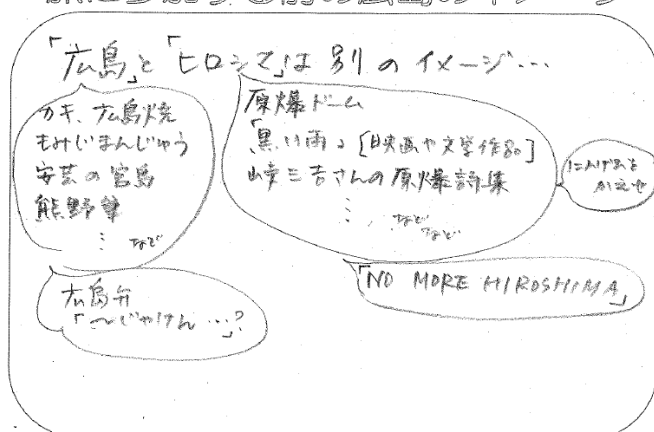 「広島」と「ヒロシマ」は別のイメージ…
カキ、広島焼
もみじまんじゅう
安芸の宮島
熊野筆
⋮ など
広島弁
「〜じゃけん…」?
原爆ドーム
「黒い雨」[映画や文学作品]
峠三吉さんの原爆詩集
⋮ など
など
にんげんを
かえせ
「NO MORE HIROSHIMA」